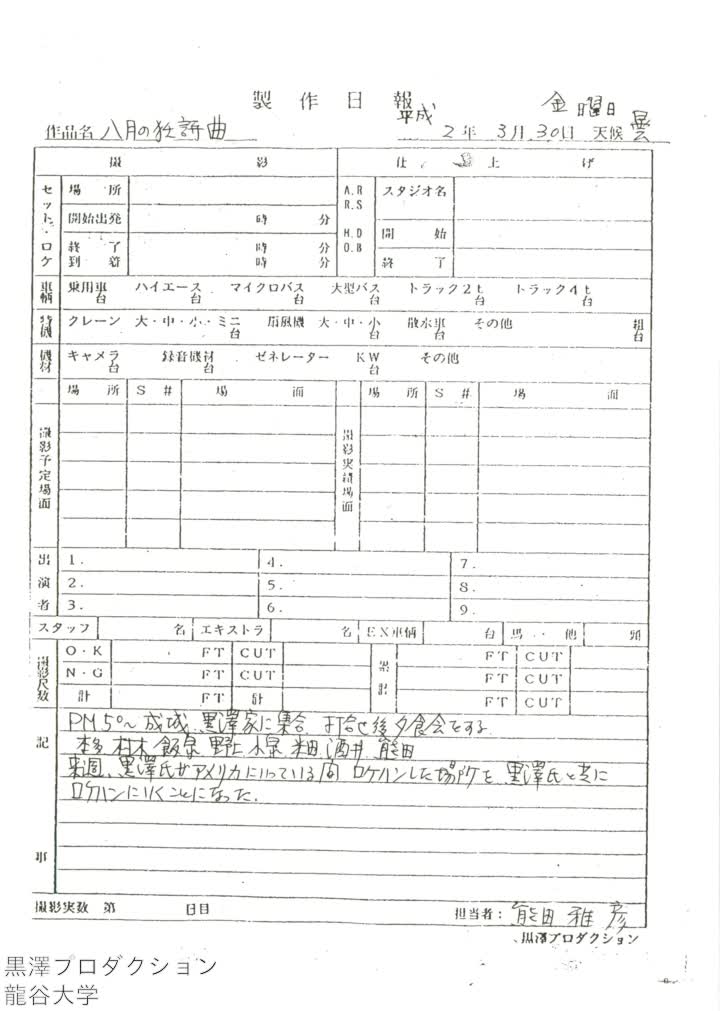 製作日報
作品名 八月の狂詩曲
平成 2年 3月 30日 金曜日 天候 曇
撮影 仕上げ
セット・ロケ 場所 A.R R.S スタジオ名
開始出発 時 分 M.D O.B 開始
終了 時 分 終了
到着 時 分
車輌 乗用車 台 ハイエース 台 マイクロバス 台 大型バス 台 トラック2t 台 トラック4t 台
特機 クレーン 大・中・小・ミニ 台 扇風機 大・中・小 台 散水車 台 その他 組 台
機材 キャメラ 台 録音機材 ゼネレーター KW 台 その他
撮影予定場面 場所 S# 場面 撮影実績場面 場所 S# 場面
出演者 1. 4. 7.
2. 5. 8.
3. 6. 9.
スタッフ 名 エキストラ 名 EX車輌 台 馬・他 頭
撮影尺数 O・K FT CUT 累計 FT CUT
N・G FT CUT FT CUT
計 FT 計 FT CUT
記事
PM5°〜 成城 黒澤家に集合 打合せ後夕食会をする
本多 村木 飯泉 野上 小泉 米田 酒井 熊田
来週、黒澤氏がアメリカに行っている間 ロケハンした場所を 黒澤氏と共に
ロケハンに行くことになった.
撮影実数 第 日目
担当者: 熊田雅彦
黒澤プロダクション
黒澤プロダクション
龍谷大学